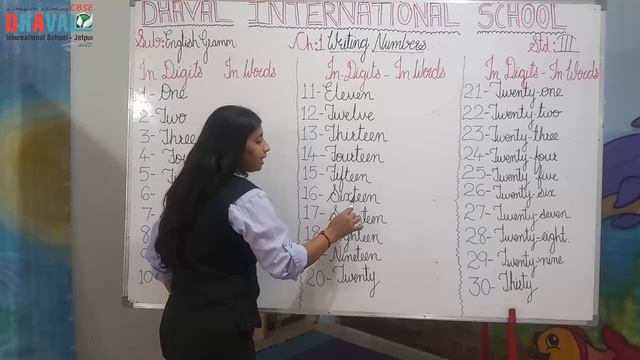 a complete schooling CBSE
DHAVAL
International School - Jetpur
DHAVAL INTERNATIONAL SCHOOL
Sub: English Gramm
Ch:1 Writing Numbers.
Std: III
In Digits In Words
1- One
2- Two
3- Three
4-
5-
6-
7-
10
In Digits - In Words
11- Eleven
12- Twelve
13- Thirteen
14- Fourteen
15- Fifteen
16- Sixteen
17-
18- Eighteen
19- Nineteen
20- Twenty
In Digits - In Words
21- Twenty-one
22- Twenty-two
23- Twenty-three
24- Twenty-four
25- Twenty five
26- Twenty-six
27- Twenty-seven
28- Twenty-eight.
29- Twenty-nine
30- Thirty